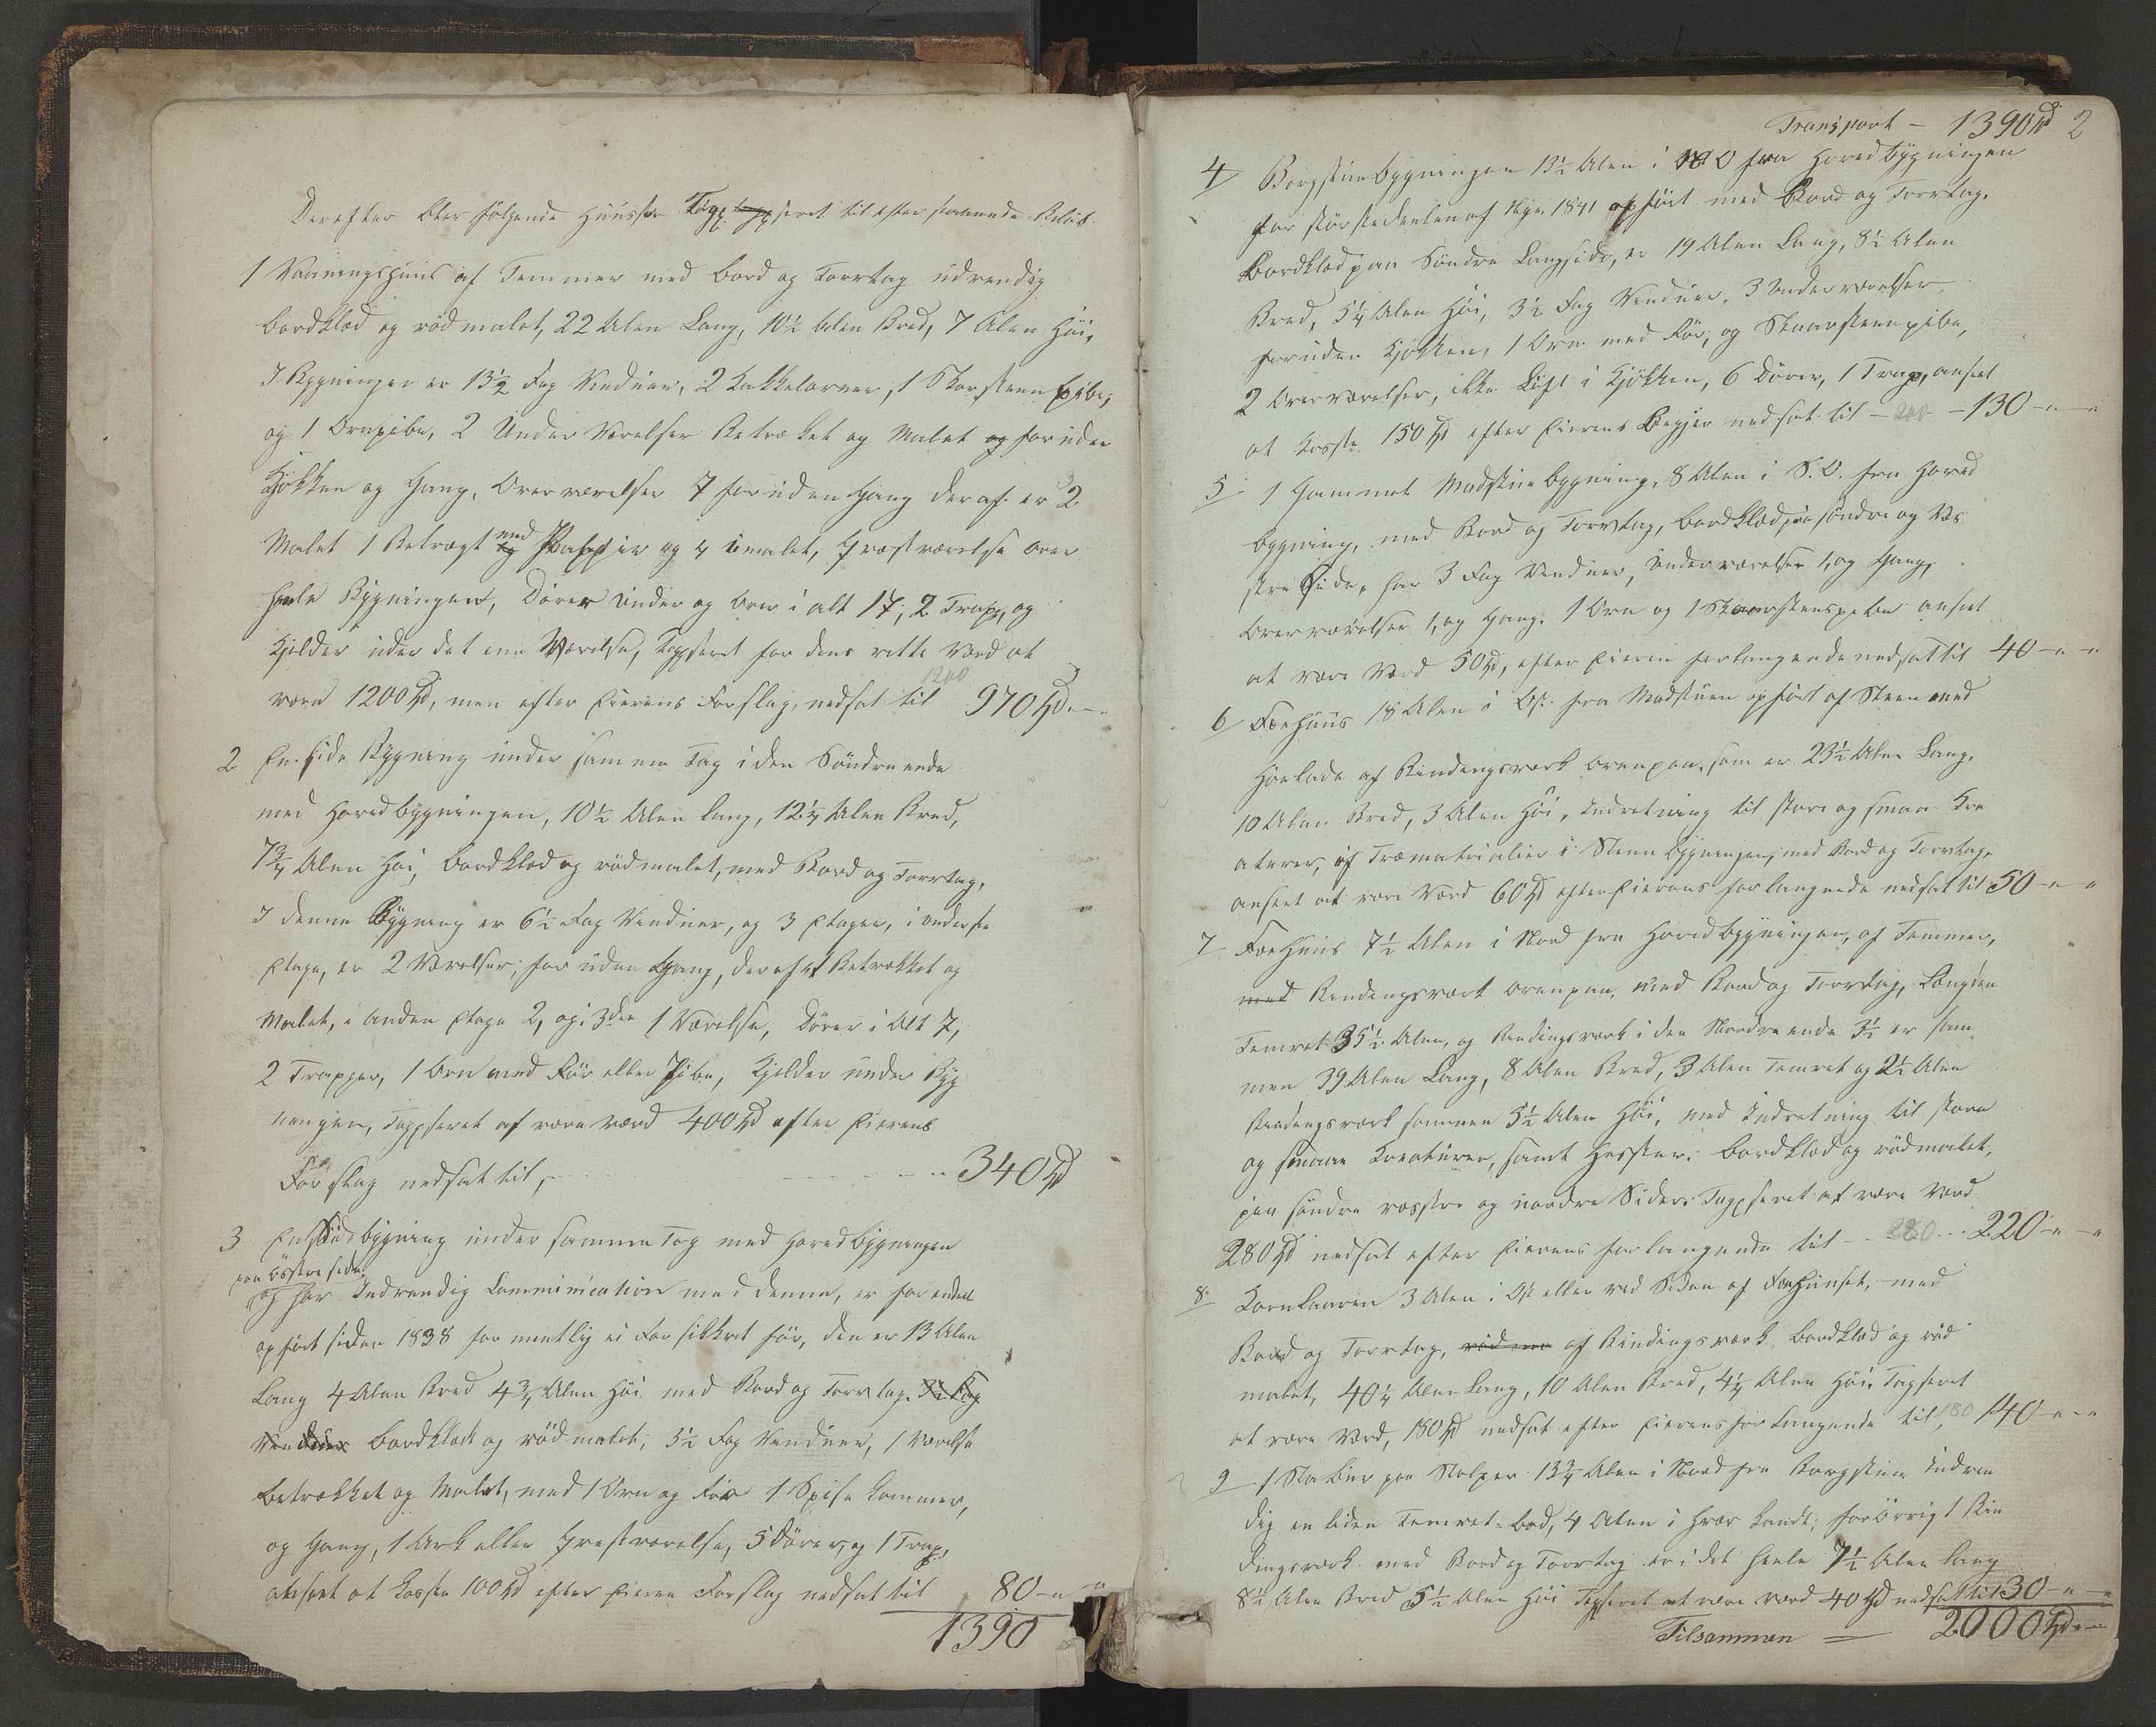 Derefter blev følgende Huusse Taxt seret til efter staaende Beløb.
1 Vaaningshuus af Temmer med bord og Torvtag udvendig
bordklæd og rødmalet, 22 Alen Lang, 10½ Alen Bred, 7 Alen Høi,
I Bygningen er 13½ Fag Vinduer, 2 Kakkelovner, 1 Skorsteen Pibe,
og 1 Ovnpibe, 2 Under Værelser Betrækket og Malet og foruden
Kjøkken og Gang, Overværelser 7 foruden Gang deraf er 2
Malet 1 Betrægt med Papir og 4 umalet, Qvæstværelse over
heele Bygningen, Dører under og over i alt 17, 2 Trap, og
Kjelder under det ene Værelse, Taxseret for dens rette Værd at
1200
være 1200 Spd, men efter Eierens Forslag, nedsat til 970 Spd.
2 En Side Bygning under samme Tag i den Søndre ende
med Hovedbygningen, 10½ Alen lang, 12¼ Alen Bred,
7¾ Alen Høi, bordklæd og rødmalet, med Bord og Torvtag,
I denne Bygning er 6½ Fag Vinduer, og 3 Etager, i underste
Etage, er 2 Værelser, foruden Gang, deraf 1 Betrækket og
Malet, i anden Etage 2, og i 3die 1 Værelse, Dører i Alt 7,
2 Trapper, 1 Ovn med Rør eller Pibe, Kjelder under Byg
ningen, Taxseret at være værd 400 Spd efter Eierens
Forslag nedsat til, 340 Spd
3 En Sidebygning under samme Tag med Hovedbygningen
paa østre side
og har Indvendig Communication med denne, er for endeel
opført siden 1838 formentlig ei Forsikkret før, den er 13 Alen
Lang 4 Alen Bred 4¾ Alen Høi med Bord og Torvtag. 3½ Fag
Vinduer bordklædt og rødmalet, 3½ Fag Vinduer, 1 Værelse
betrækket og Malet, med 1 Ovn og Rør 1 Spise kammer,
og Gang, 1 Ark eller Qvæstværelse, 5 Dører, og 1 Trap,
anseet at koste 100 Spd efter Eieren Forslag nedsat til 80
1390
Transport - 1390 Spd 2
4 Borgstuebygningen 13½ Alen i O fra Hovedbygningen
for størstedeelen af Nye 1841 opført med Bord og Torvtag.
bordklæd paa Søndre Langside, er 19 Alen Lang, 8½ Alen
Bred, 5¼ Alen Høi, 3½ Fag Vinduer, 3 Underværelser
foruden Kjøkken, 1 Ovn med Rør, og Skaarsteenpibe,
2 Overværelser, ikke Loft i Kjøkken, 6 Dører, 1 Trap, anseet
at koste 150 Spd efter Eierens Begjær nedsat til - 200 - 130
5 1 Gammel Madstuebygning, 8 Alen i S.O. fra Hoved
bygning, med Bord og Torvtag, bordklæd paa søndre og Ves
stre Side, har 3 Fag Vinduer, underværelser 1, og Gang,
Overværelser 1, og Gang. 1 Ovn og 1 Skaarsteenspibe anseet
at være Værd 50 Spd, efter Eieren forlangende nedsat til 40
6 Fæehuus 18 Alen i Øst fra Madstuen opført af Steen med
Høelade af Bindingsværk ovenpaa, som er 23½ Alen Lang,
10 Alen Bred, 3 Alen Høi, Indretning til store og smaa Kre
aturer, af Træmatrialier i Steen bygningen, med Bord og Torvtag,
anseet at være Værd 60 Spd efter Eierens forlangende nedsat til 50
7 Fæehuus 7½ Alen i Nord fra Hovedbygningen, af Temmer,
med Bindingsværk ovenpaa, med Bord og Torvtag, Længden
Temret 35½ Alen, og Bindingsværk i den Nordre ende 3½ er sam
men 39 Alen Lang, 8 Alen Bred, 3 Alen Temret og 2½ Alen
Bindingsværk sammen 5½ Alen Høi, med Indretning til store
og smaae Kreaturer, samt Hesster. bordklæd og rødmalet,
paa søndre vesstre og nordre Sider. Taxseret at være Værd
280 Spd nedsat efter Eierens forlangende til - 280 - 220
8 Kornlaaven 3 Alen i Øst eller ved Siden af Fæehuuset, med
Bord og Torvtag, rød ma af Bindingsværk bordklæd og rød
malet, 40¼ Alen lang, 10 Alen Bred, 4¼ Alen Høi. Taxseret
at være Værd, 180 Spd nedsat efter Eierens forlangende til 180 140
9 1 Stabur paa Stolper 13¾ Alen i Nord fra Borgstuen Indven
dig en liden Temret-bod, 4 Alen i hver Kandt, forøvrigt Bin
dingsværk med Bord og Torvtag er i det heele 7½ Alen lang
8½ Alen Bred 5½ Alen Høi Taxseret at være værd 40 Spd nedsat til 30
Tilsammen = 2000 Spd